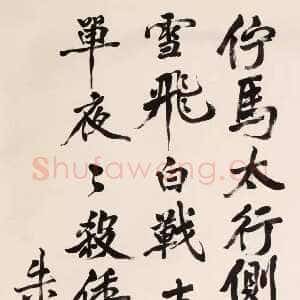 佇馬太行側
雪飛白戰
單夜〻殺倭
朱
Shufawang.cn